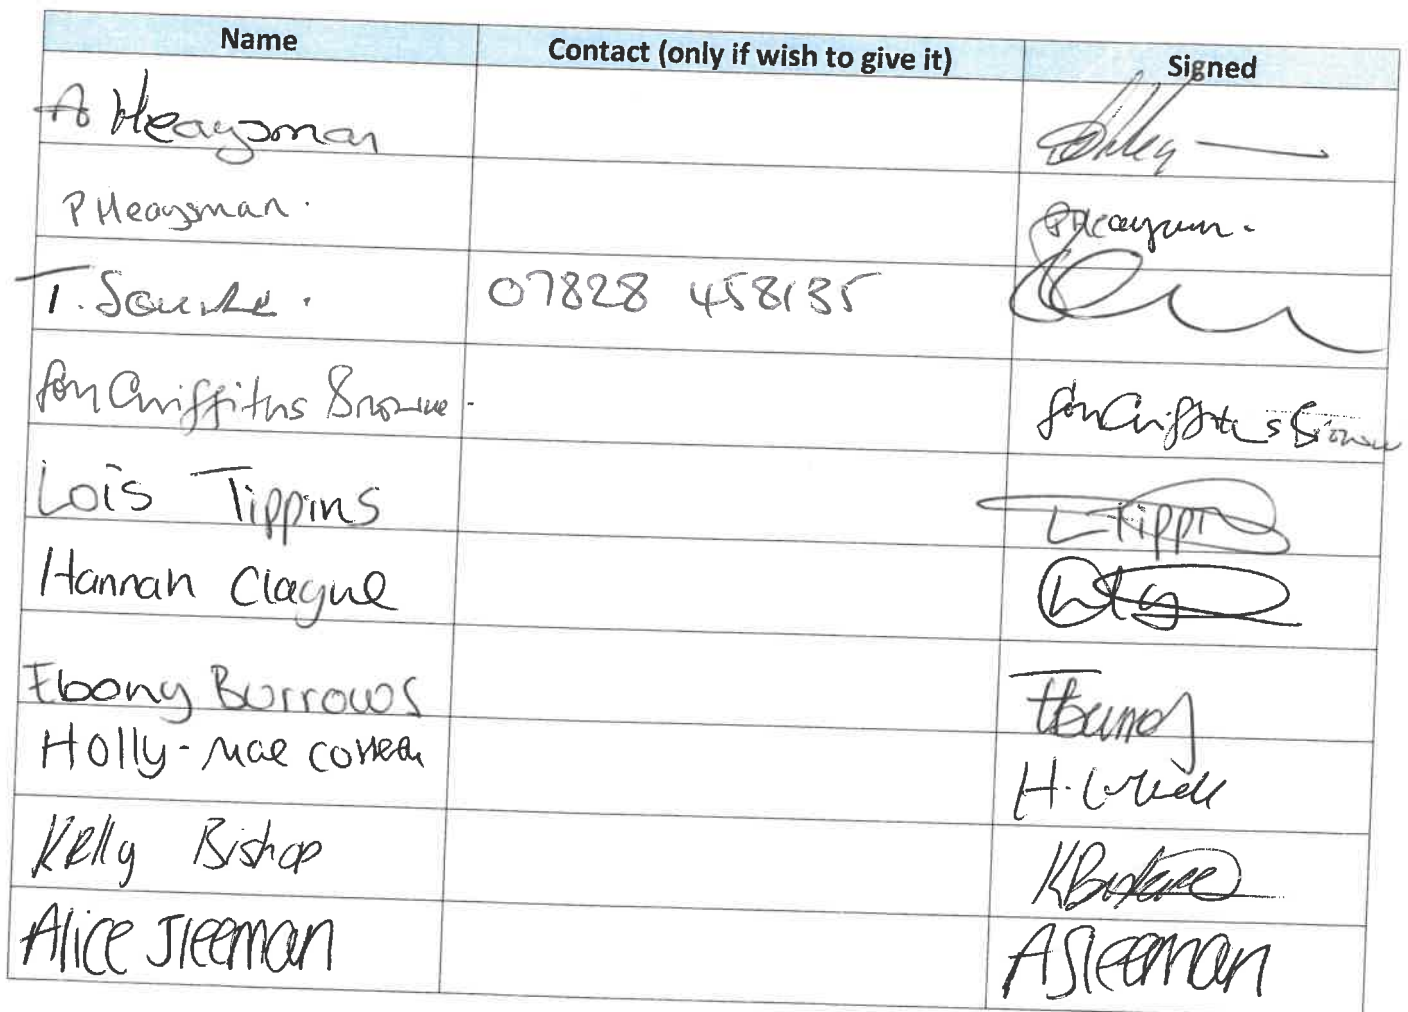 Name Contact (only if wish to give it) Signed
A Heaysman
P Heaysman. PHeaysman.
T. 07828 458135
Griffiths Browne. Griffiths Browne
Lois Tippins L Tippins
Hannah Clague
Ebony Burrows Ebony
Holly-Mae H.
Kelly Bishop K Bishop
Alice Sleeman A Sleeman